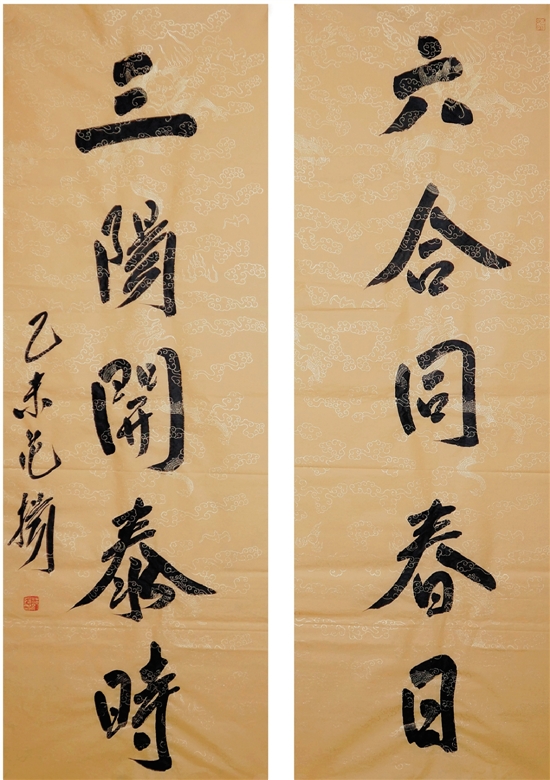 六合同春日
三陽開泰時
乙未范曾